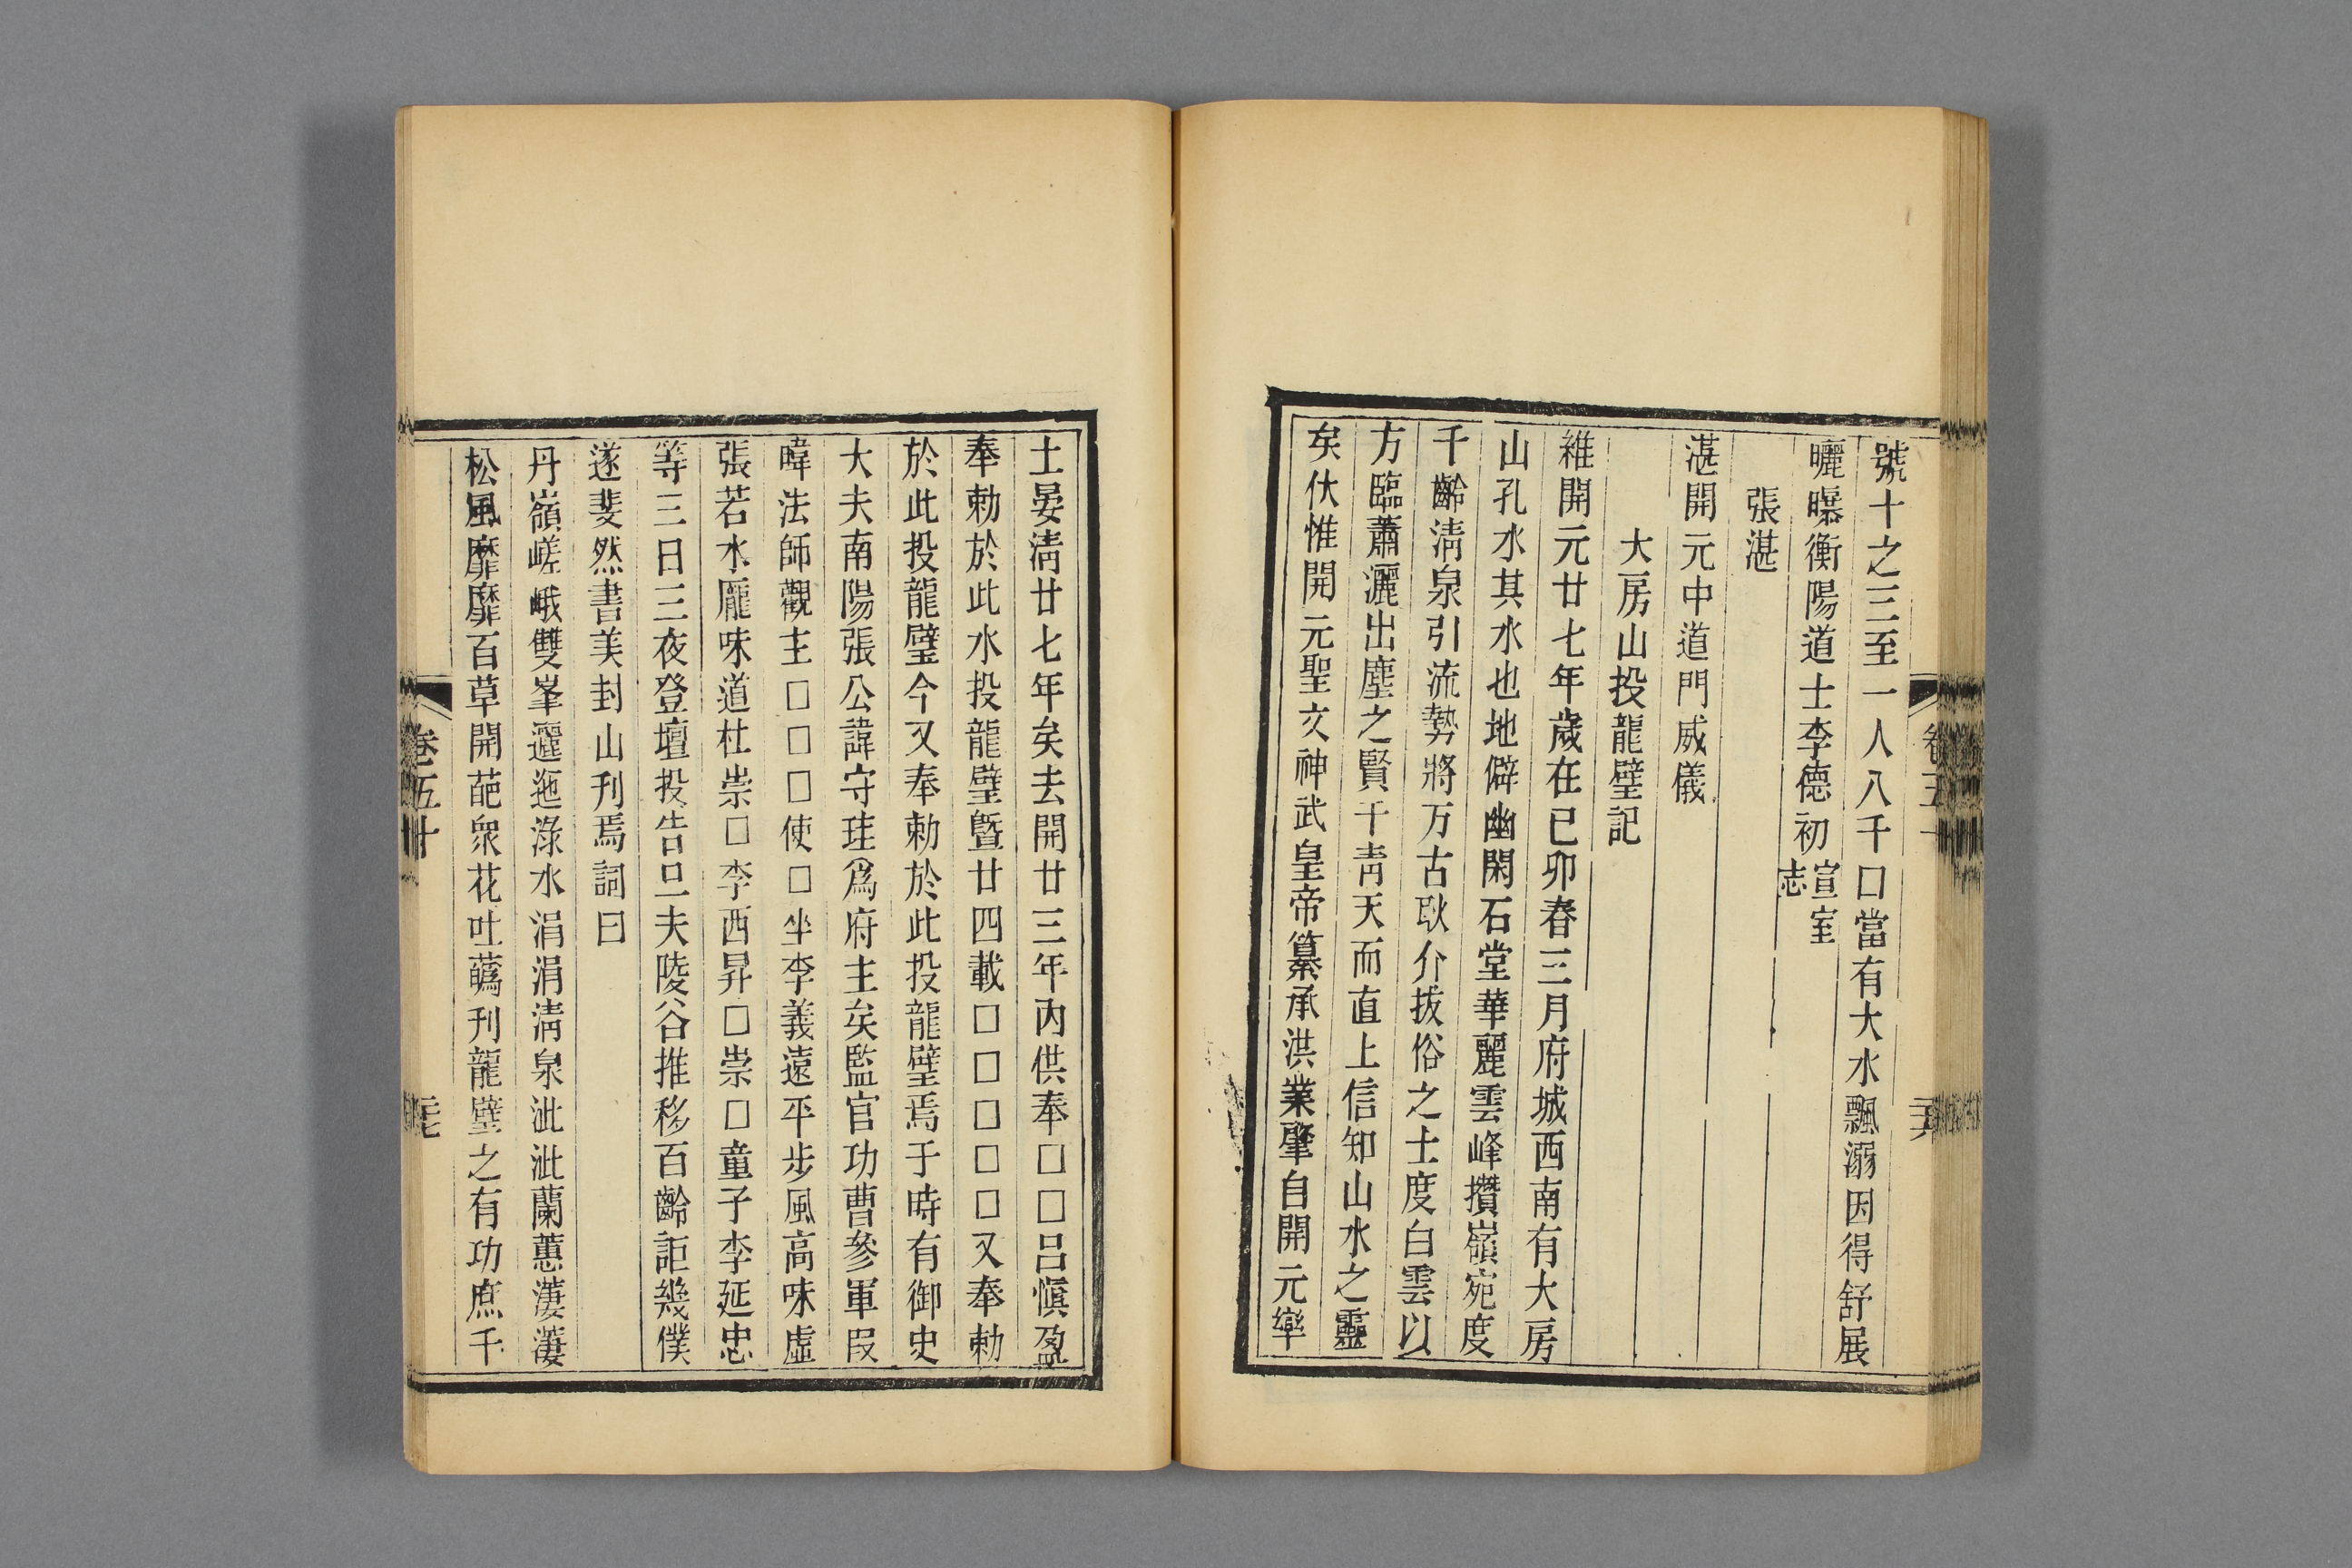 號十之三至一人八千口當有大水飄溺因得舒展
曬曝衡陽道士李德初宣室志
張湛
湛開元中道門威儀
大房山投龍璧記
維開元廿七年歲在已卯春三月府城西南有大房
山孔水其水也地僻幽閑石堂華麗雲峰攢嶺宛度
千齡淸泉引流勢將万古耿介拔俗之士度白雲以
方臨蕭灑出塵之賢干靑天而直上信知山水之靈
矣伏惟開元聖文神武皇帝纂承洪業肇自開元率
土晏淸廿七年矣去開廿三年內供奉□□呂愼盈
奉勅於此水投龍璧曁廿四載□□□□□又奉勅
於此投龍璧今又奉勅於此投龍璧焉于時有御史
大夫南陽張公諱守珪爲府主矣監官功曹參軍叚
暐法師觀主□□□使□坐李義遠平步風高味虛
張若水龐味道杜崇□李西昇□崇□童子李延忠
等三日三夜登壇投告旦夫陵谷推移百齡詎幾僕
遂斐然書美封山刊焉詞曰
丹嶺嵯峨雙峯邐迤淥水涓涓淸泉泚泚蘭蕙萋萋
松風靡靡百草開葩衆花吐蘤刊龍璧之有功庶千
卷五十
卷五十